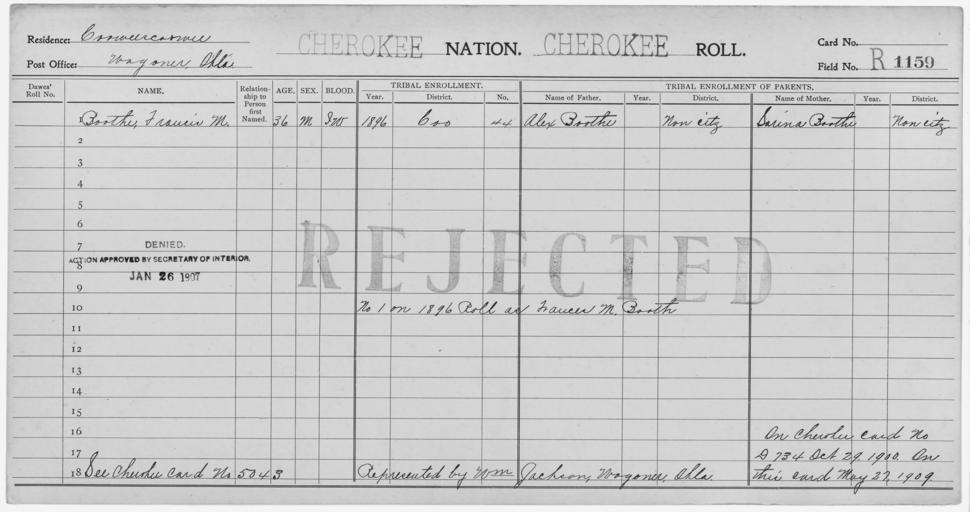 Residence: Cooweescoowee
Post Office: Wagoner, Okla.
CHEROKEE NATION. CHEROKEE ROLL.
Card No.
Field No. R 1159
Dawes' Roll No. NAME. Relationship to Person first Named. AGE. SEX. BLOOD. TRIBAL ENROLLMENT. Year. District. No. TRIBAL ENROLLMENT OF PARENTS. Name of Father. Year. District. Name of Mother. Year. District.
1 Boothe, Francis M. 36 M IW 1896 Coo 44 Alex Boothe Non citz Boothe Non citz
2
3
4
5
6
REJECTED
7 DENIED.
8 ACTION APPROVED BY SECRETARY OF INTERIOR.
JAN 26 1907
9
10 No 1 on 1896 Roll as Frances M. Booth
11
12
13
14
15
16 On Cherokee card No
17 D 734 Oct 29, 1900. On
18 See Cherokee card No 5043 Represented by Wm Jackson, Wagoner, Okla. this card May 27, 1909.